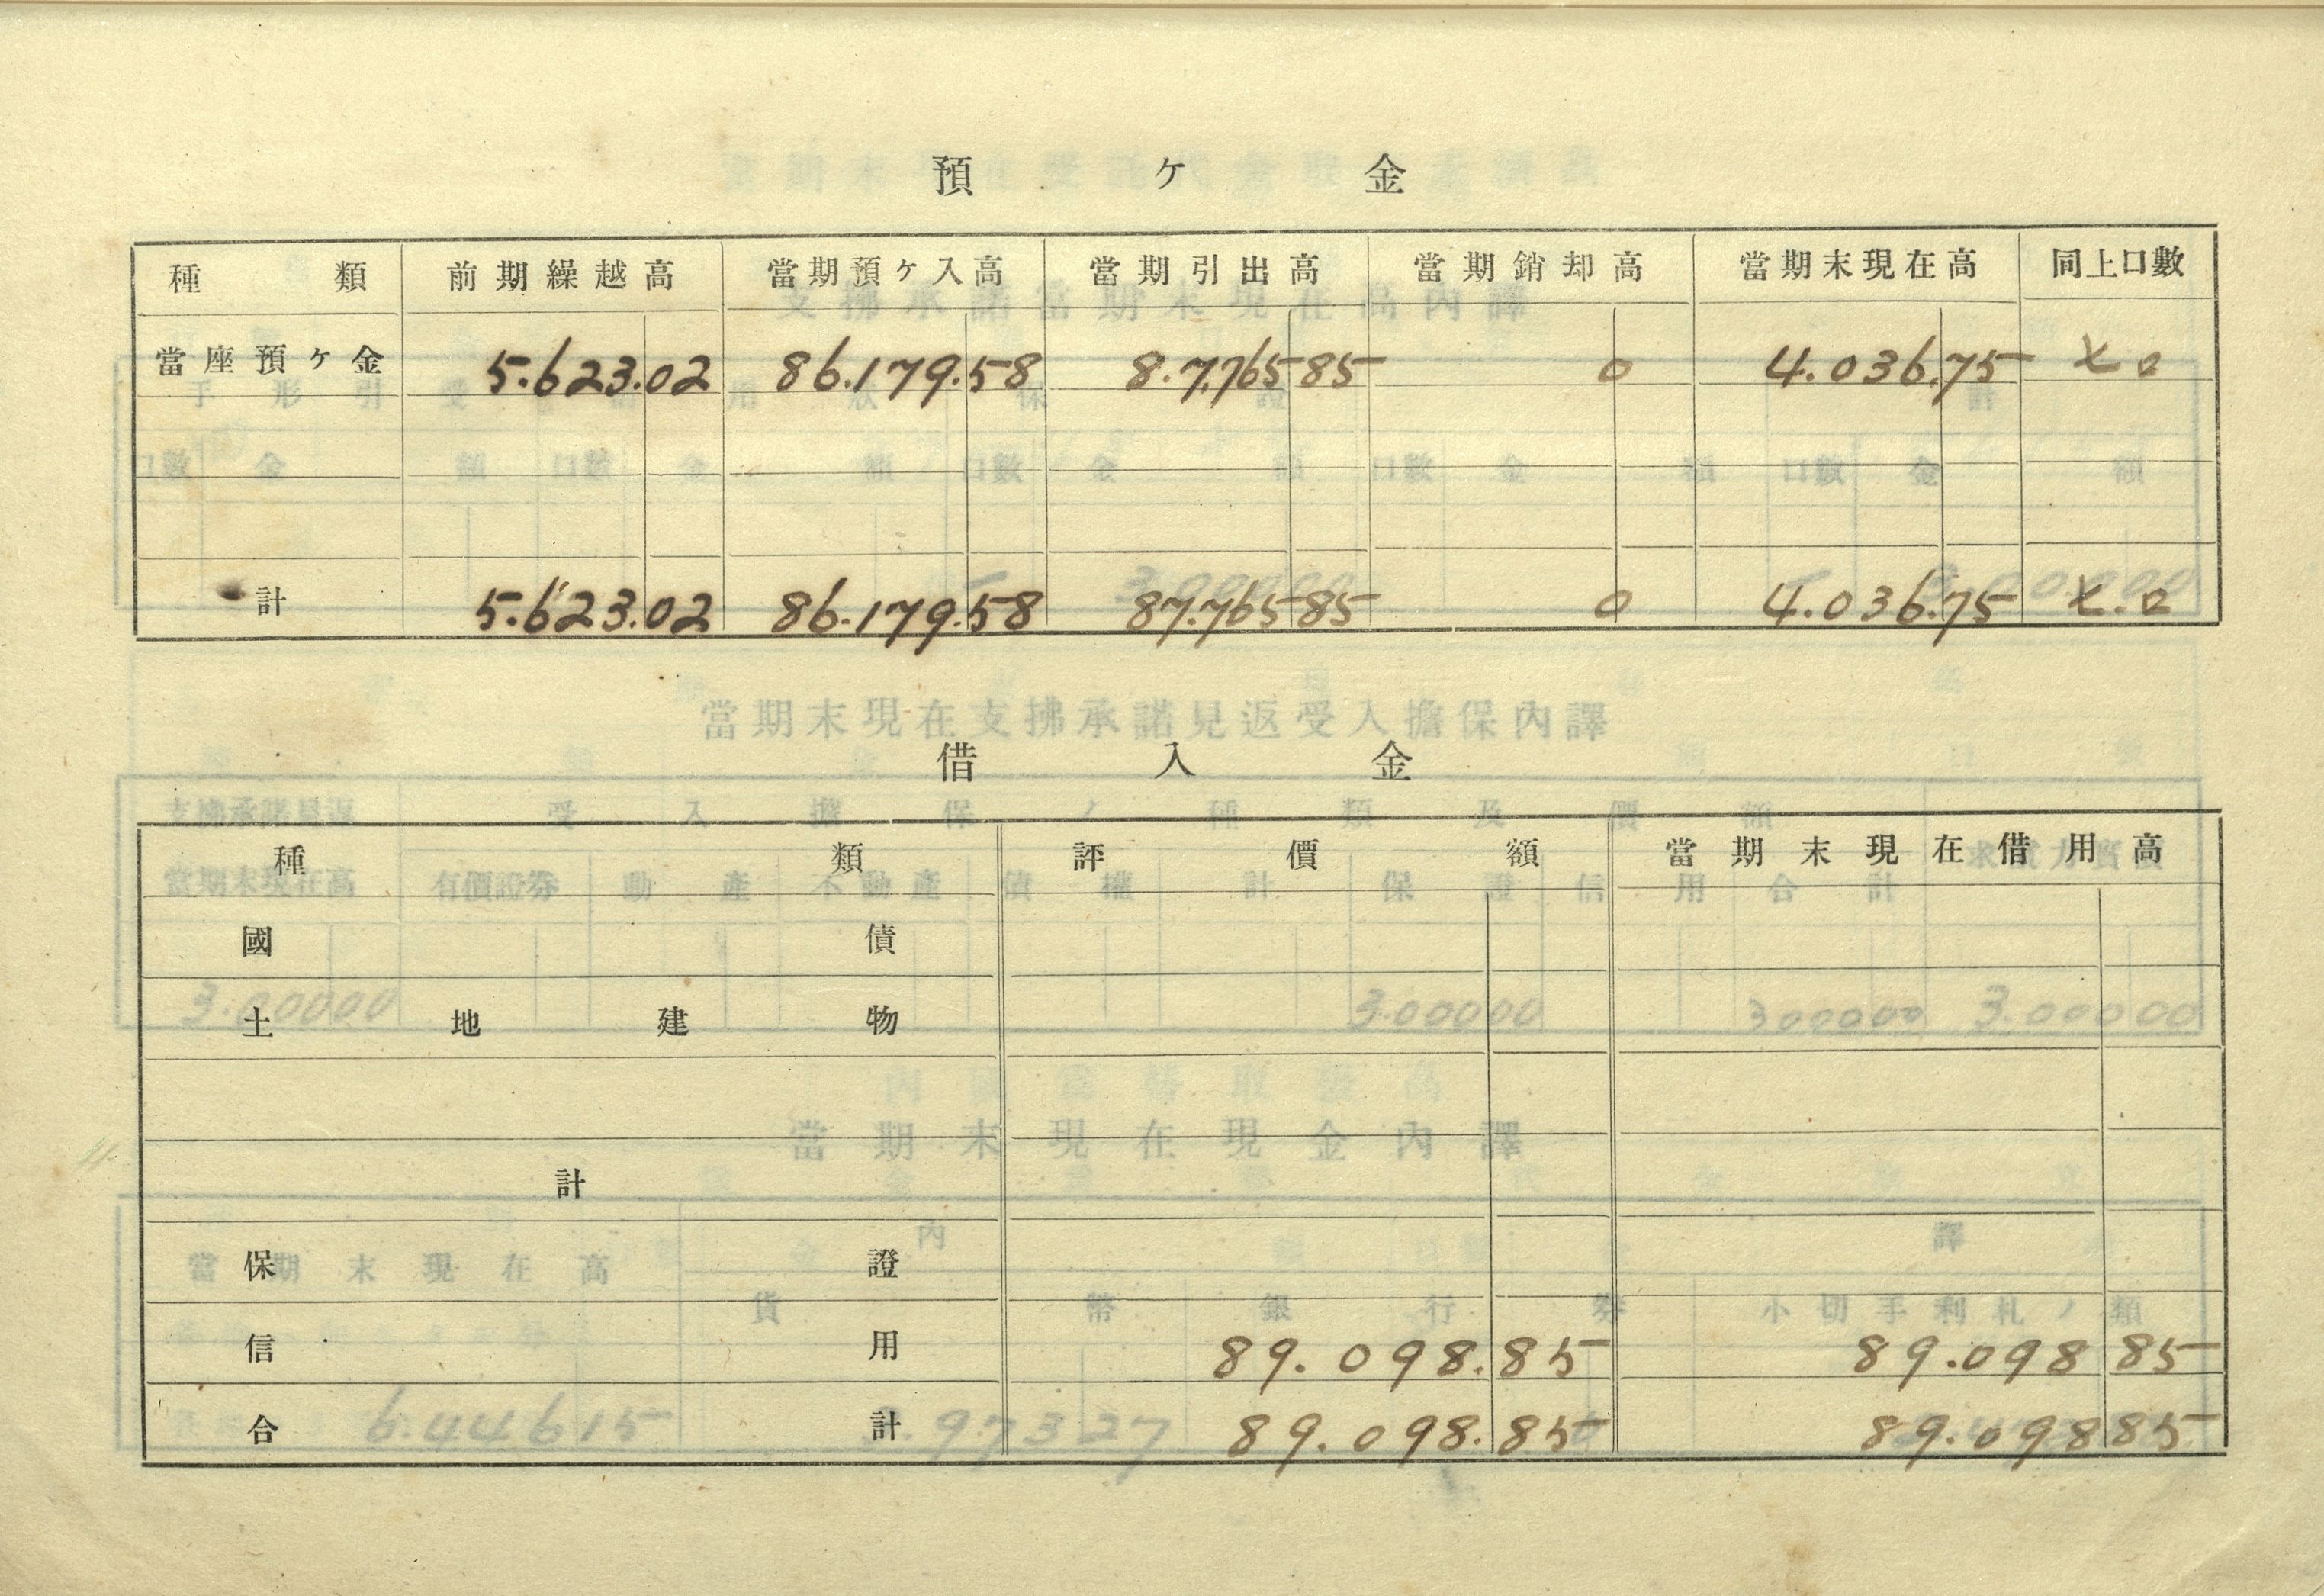 預ヶ金
種類 前期繰越高 當期預ヶ入高 當期引出高 當期銷却高 當期末現在高 同上口數
當座預ヶ金 5.623.02 86.179.58 8.7.765 85 0 4.036.75
計 5.623.02 86.179.58 87.765 85 0 4.036.75
借入金
種類 評價額 當期末現在借用高
國債
土地建物
計
保證
信用 89.098.85 89.098 85
合計 89.098.85 89.098 85